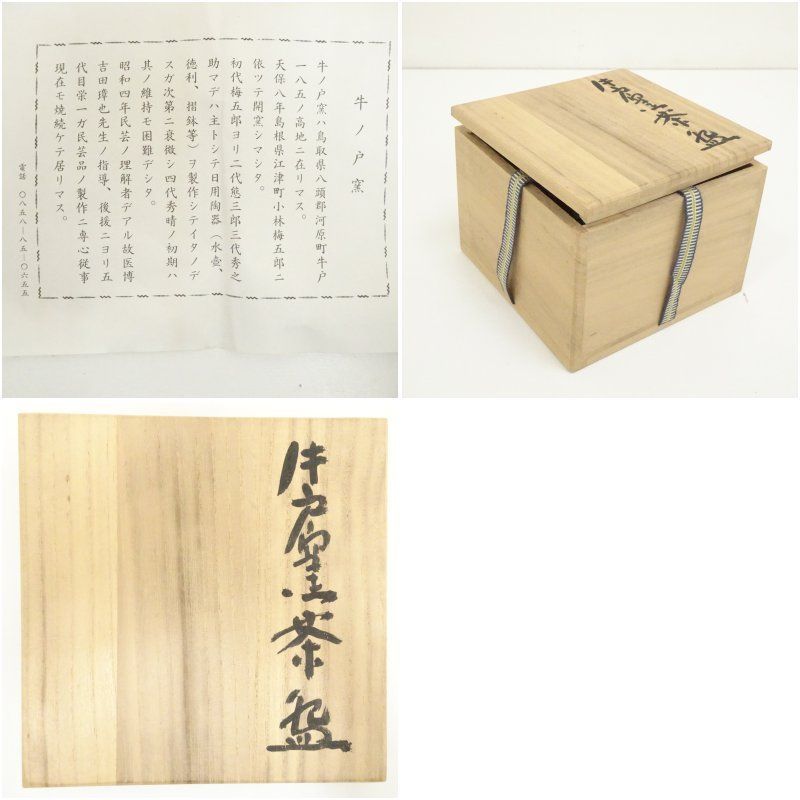 牛ノ戸窯
牛ノ戸窯ハ鳥取県八頭郡河原町牛戸
一八五ノ高地ニ在リマス。
天保八年島根県江津町小林梅五郎ニ
依ツテ開窯シマシタ。
初代梅五郎ヨリ二代熊三郎三代秀之
助マデハ主トシテ日用陶器（水壺、
徳利、摺鉢等）ヲ製作シテイタノデ
スガ次第ニ衰微シ四代秀晴ノ初期ハ
其ノ維持モ困難デシタ。
昭和四年民芸ノ理解者デアル故医博
吉田璋也先生ノ指導、後援ニヨリ五
代目栄一ガ民芸品ノ製作ニ専心従事
現在モ焼続ケテ居リマス。
電話 〇八五八―八五―〇六五五
牛戸窯茶盌
牛戸窯茶盌